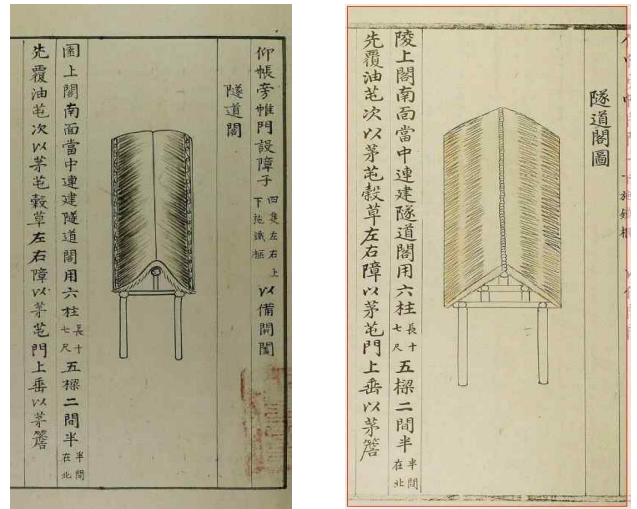 仰帳旁帷門設障子四隻左右上下施鐵樞以備開闔
隧道閣
園上閣南面當中連建隧道閣用六柱長十七尺五樑二間半半間在北
先覆油芚次以茅芚穀草左右障以茅芚門上垂以茅簷
隧道閣圖
陵上閣南面當中連建隧道閣用六柱長十七尺五樑二間半半間在北
先覆油芚次以茅芚穀草左右障以茅芚門上垂以茅簷